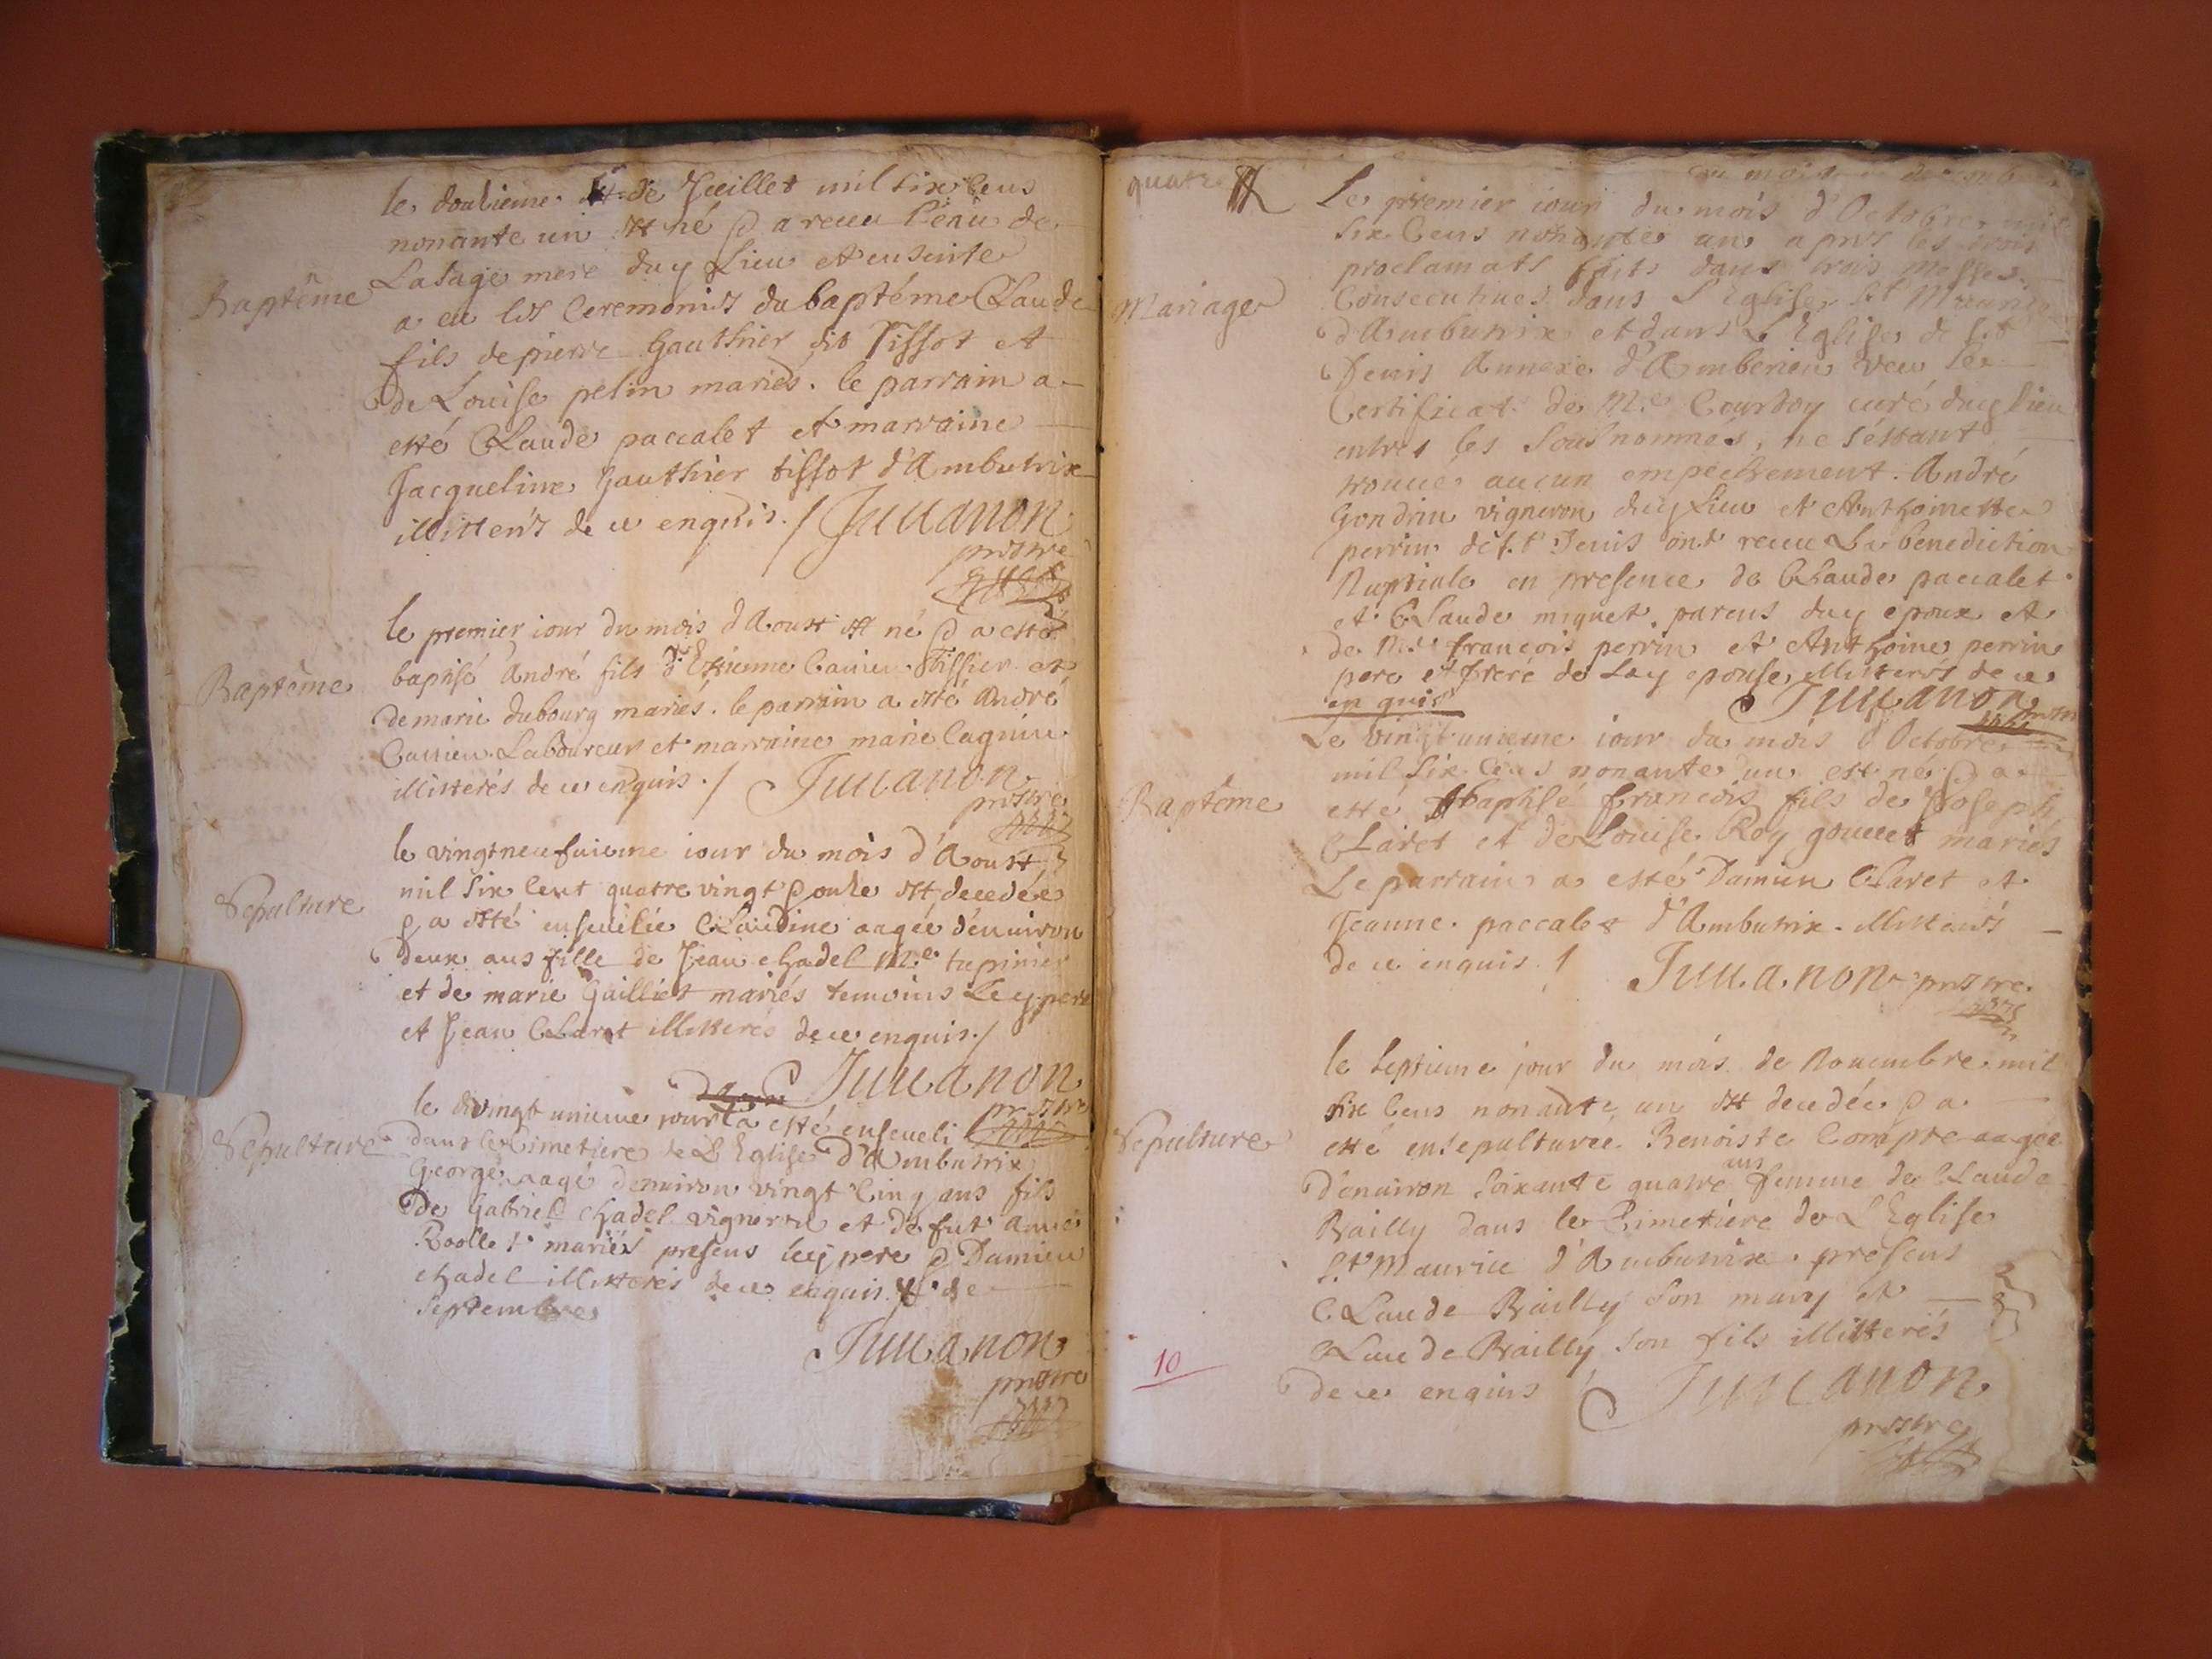 le douzieme de Jüeillet mil six cens
nonante un est né & a receu l'eau de
Lasage mere duy Lieu et ensuite
Baptême
a eu les Ceremonies du baptéme Claude
fils de pierre Gauthier dit Tissot et
de Louise pelin mariés. le parrain a
esté Claude paccalet et marraine
Jacqueline Gauthier tissot d'Ambutrix
illitterés de ce enquis. / Juuanon
prestre
le premier iour du mois d'Aoust est né & a esté
baptisé André fils d'Estienne Cauieu Tissier et
Baptême
de marie dubourg mariés. le parrain a esté André
Cauieu Laboureur et marraine marie
illitterés de ce enquis. / Juuanon
prestre
le vingtneufuieme iour du mois d'Aoust
mil six cent quatre vingt & onze est decedée
Sepulture
& a esté enseuelie Claudine aagée d'enuiron
deux ans fille de Jean chadel Me tupinier
et de marie Guilliet mariés temoins Ley pere
et Jean Claret illitterés de ce enquis. /
Juuanon
prestre
le vingt unieme iour a esté enseueli
Sepulture
dans le Cimetiere de L'Eglise d'Ambutrix
George aagé d'enuiron vingt cinq ans fils
de Gabriel chadel vigneron et de fut
mariés presens Ley pere & Damien
chadel illitterés de ce enquis de
Septembre
Juuanon
prestre
quatre
Le premier iour du mois d'Octobre mil
six cens nonante un apres les trois
proclamats faits dans trois Messes
Mariage
Consecutiues dans L'Eglise St Maurice
d'Ambutrix et dans L'Eglise de St
Denis Annexe d'Amberieu veu le
Certificat de Mre Courdoy curé duy lieu
entres les sousnommés, ne s'estant
trouué aucun empechement. André
Gondrin vigneron duy Lieu et Anthoinette
perrin de St Denis ont receu La benediction
Nuptiale en presence de Claude paccalet
et Claude miquet, parens duy epoux et
de Me françois perrin et Anthoine perrin
pere et frere de Lay epouse illitterés de ce
enquis
Juuanon
Le vingt unieme iour du mois d'Octobre
mil six cens nonante un est né & a
Baptême
esté baptisé françois fils de Joseph
Claret et de Louise Roy gouuet mariés
Le parrain a esté Damien Claret et
Jeanne paccalet d'Ambutrix. illitterés
de ce enquis. / Juuanon prestre
le septieme jour du mois de Nouembre mil
six cens nonante un est decedée & a
Sepulture
esté ensepulturée Benoiste Compte aagée
d'enuiron soixante quatre ans femme de Claude
Bailly dans le Cimetiere de L'Eglise
St Maurice d'Ambutrix. presens
Claude Bailly son mary et
Claude Bailly son fils illitterés
10
de ce enquis Juuanon
prestre